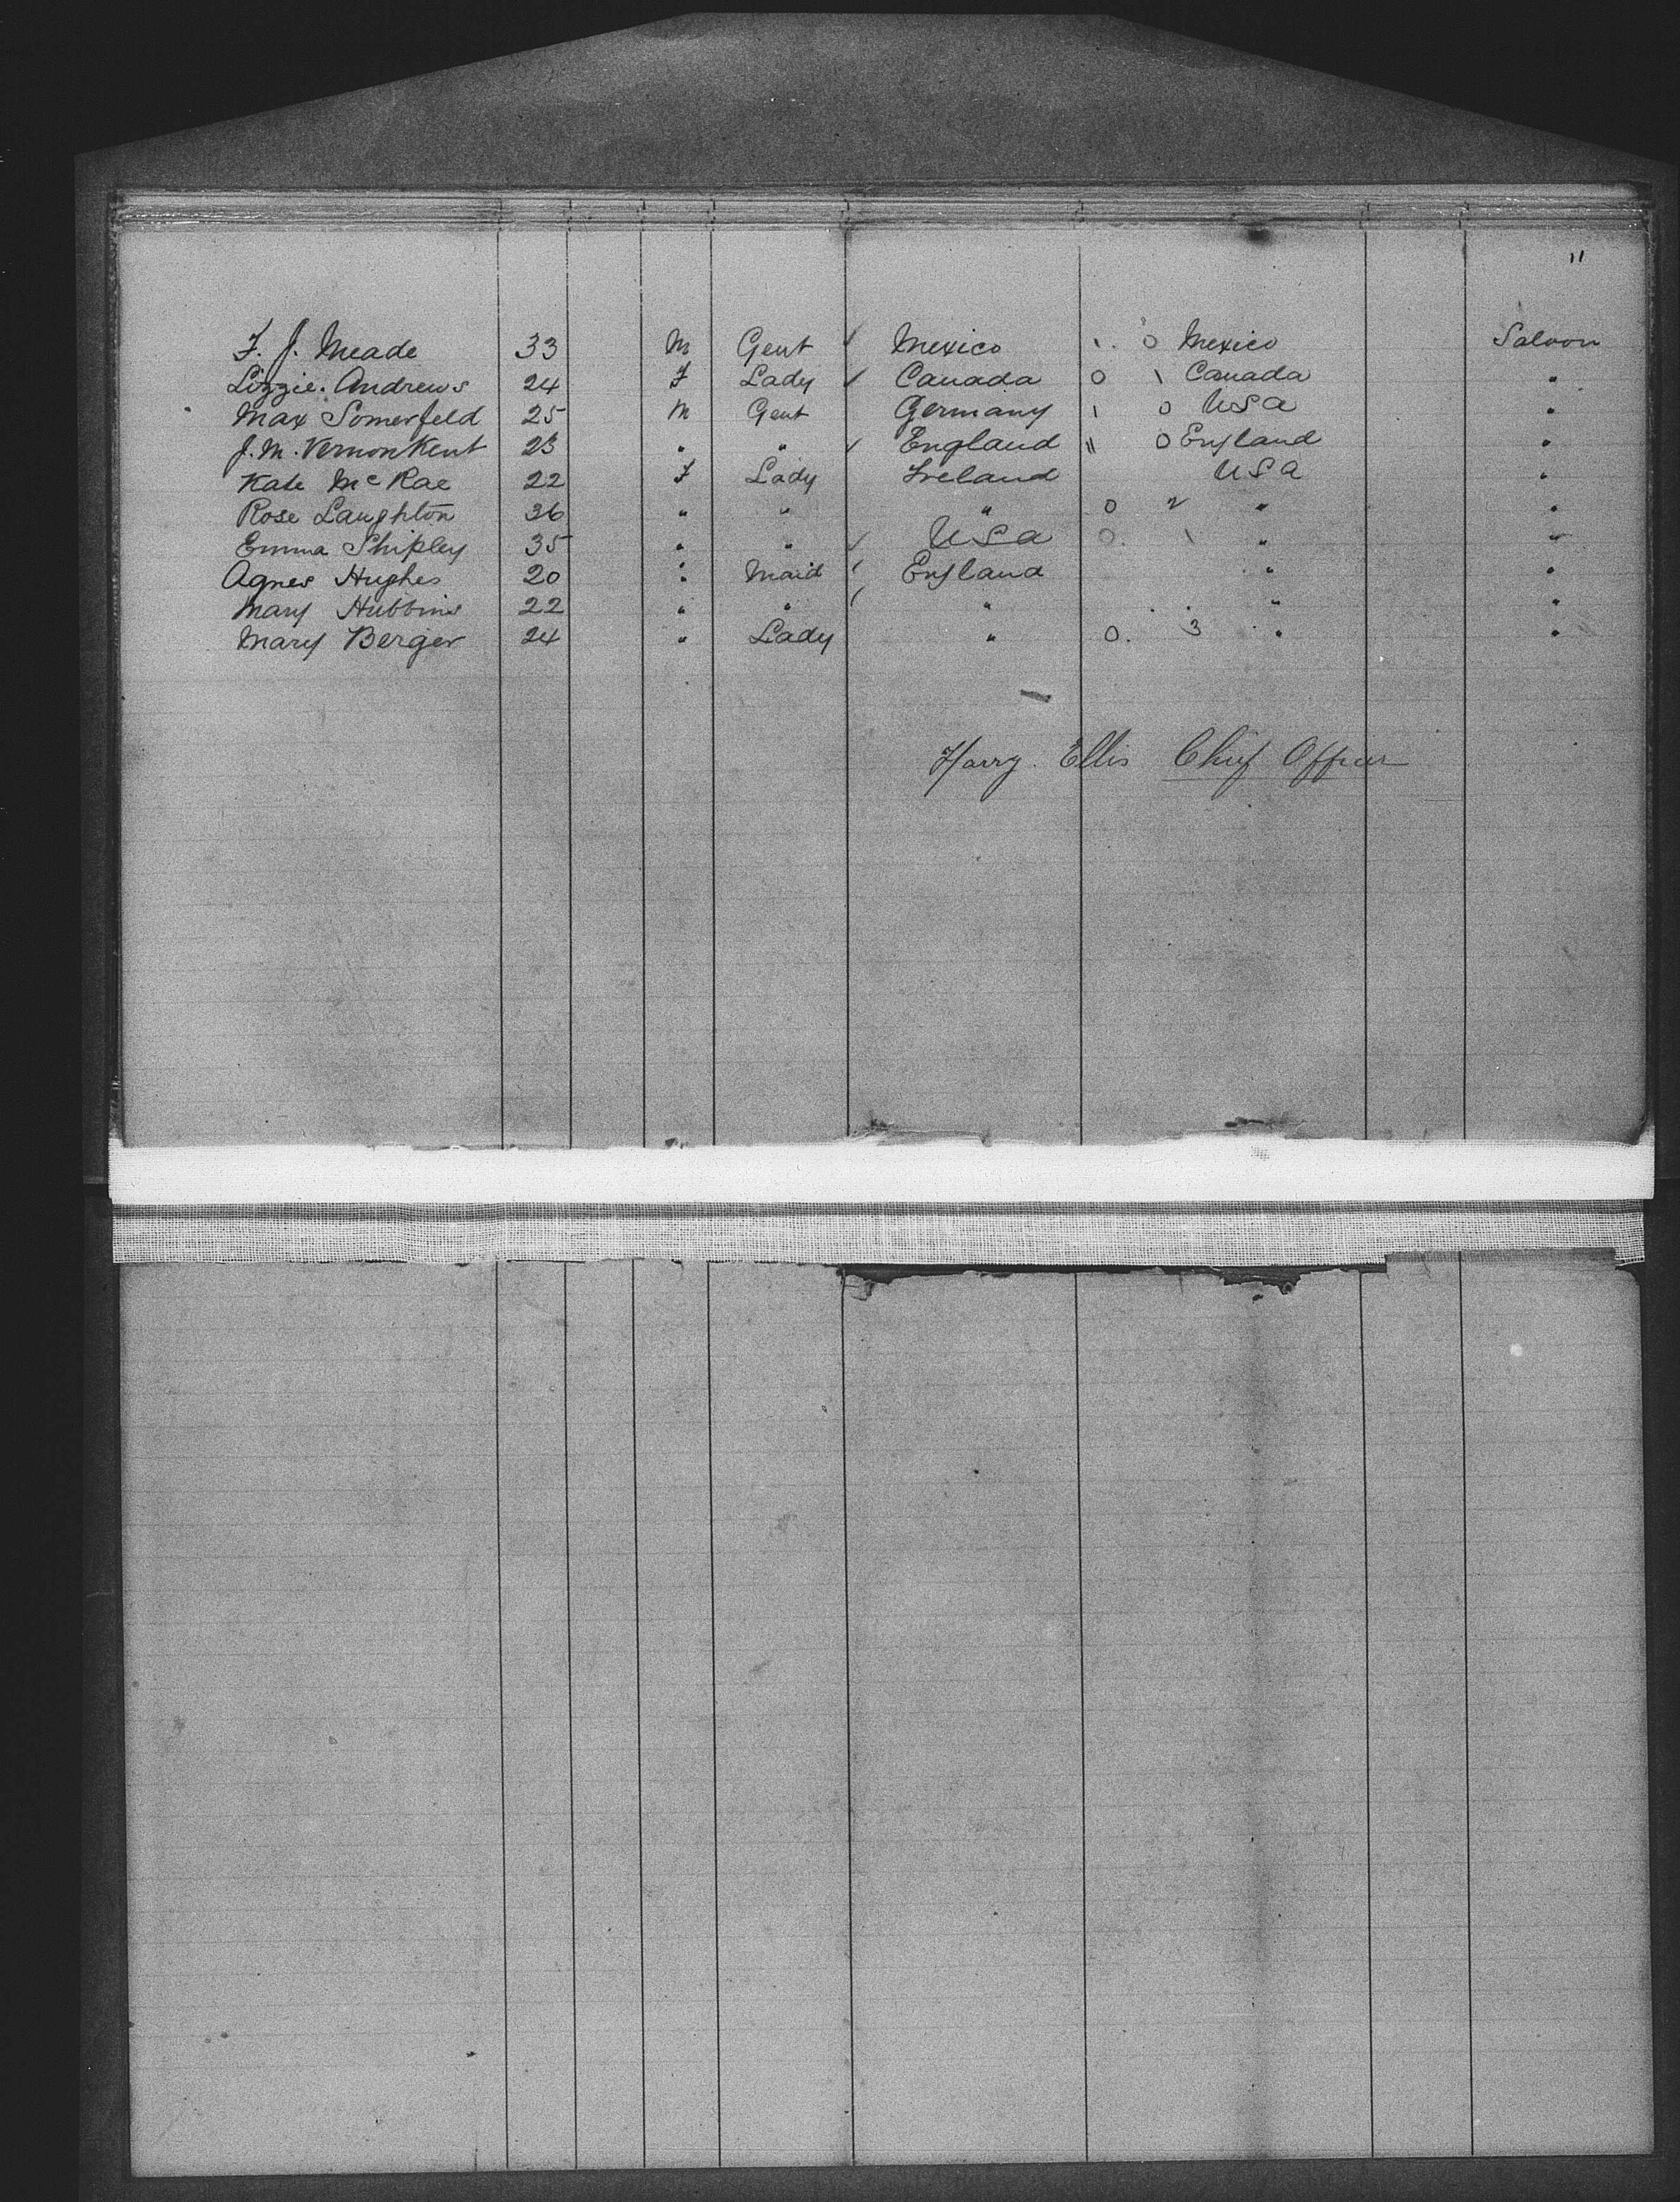 "
F. J. Meade 33 M Gent Mexico 1. 0 Mexico Saloon
Lizzie. Andrews 24 F Lady Canada 0 1 Canada "
Max Somerfeld 25 M Gent Germany 1 0 USA "
J. M. Vernon Kent 23 " " England 11 0 England "
Kate McRae 22 F Lady Ireland USA "
Rose Laughton 36 " " " 0 2 " "
Emma Shipley 35 " " USA 0. 1 " "
Agnes Hughes 20 " Maid England " "
Mary Hubbins 22 " " " " "
Mary Berger 24 " Lady " 0. 3 " "
Harry. Ellis Chief Officer